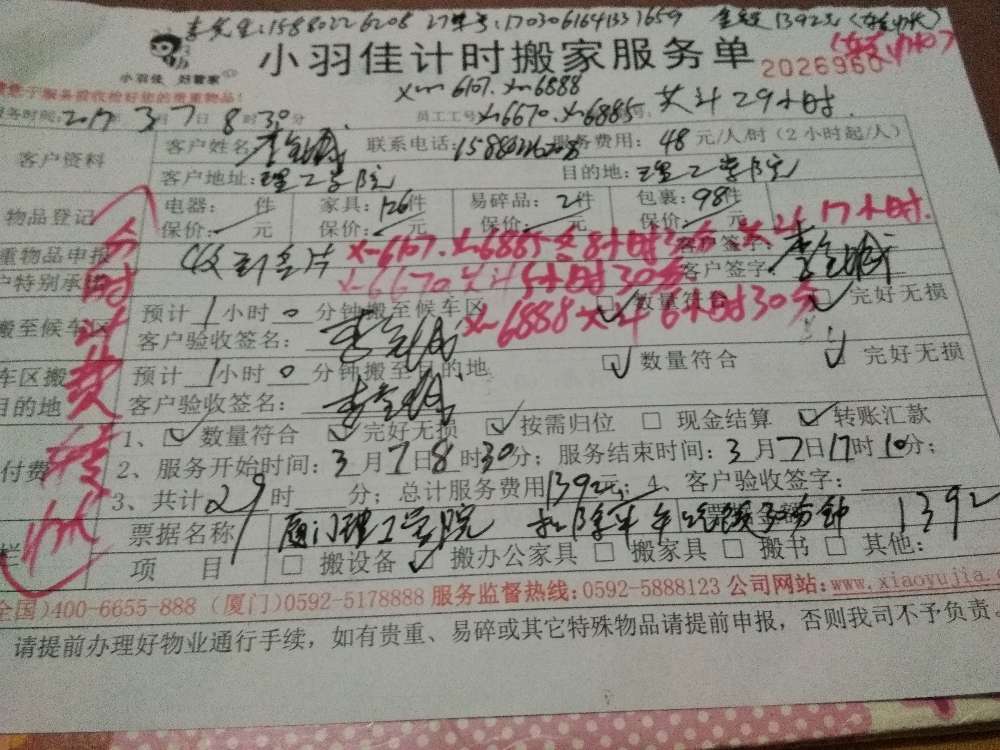 李先生:15880226208 27单号:170306164133 7659 1392元
小羽佳计时搬家服务单
小羽佳 好管家
2026960
Xm6107. Xm6888
服务验收检好您的贵重物品!
务时间:2017年3月7日8时30分 员工工号 Xm6670. Xm6885号 共计29小时
客户资料
客户姓名 联系电话:15880226208 服务费用: 48 元/人/时 (2小时起/人)
客户地址:理工学院 目的地: 理工学院
物品登记
电器: 件 家具: 126件 易碎品: 2件 包裹: 98件
保价: 元 保价: 元 保价: 元 保价: 元
重物品申报 收到名片 客户签字
户特别承
Xm6107. Xm6885各8小时30分 共计17小时.
Xm6670共计5小时30分
Xm6888共计6小时30分
搬至候车区
预计1小时0分钟搬至候车区 数量符合 完好无损
客户验收签名:
车区搬
目的地
预计1小时0分钟搬至目的地 数量符合 完好无损
客户验收签名:
1、数量符合 完好无损 按需归位 现金结算 转账汇款
付费
2、服务开始时间: 3月7日8时30分; 服务结束时间: 3月7日17时10分;
3、共计29时 分; 总计服务费用1392元; 4、客户验收签字:
票据名称 厦门理工学院 30分钟 1392
项 目 搬设备 搬办公家具 搬家具 搬书 其他:
分时计费
全国)400-6655-888 (厦门)0592-5178888 服务监督热线: 0592-5888123 公司网站: www.xiaoyujia.c
请提前办理好物业通行手续, 如有贵重、易碎或其它特殊物品请提前申报, 否则我司不予负责。